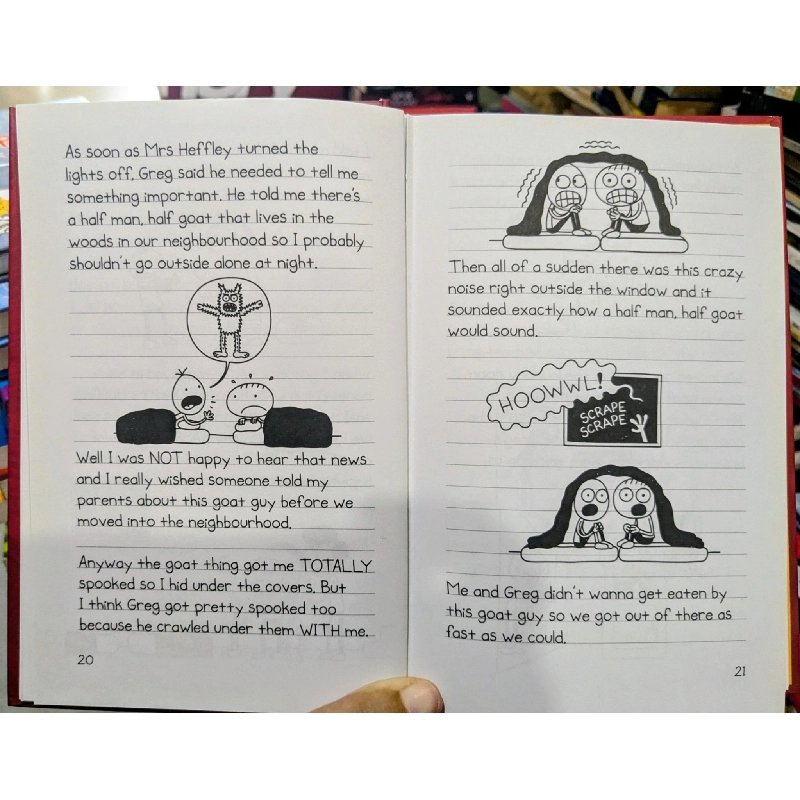 As soon as Mrs Heffley turned the
lights off, Greg said he needed to tell me
something important. He told me there's
a half man, half goat that lives in the
woods in our neighbourhood so I probably
shouldn't go outside alone at night.
Well I was NOT happy to hear that news
and I really wished someone told my
parents about this goat guy before we
moved into the neighbourhood.
Anyway the goat thing got me TOTALLY
spooked so I hid under the covers. But
I think Greg got pretty spooked too
because he crawled under them WITH me.
20
Then all of a sudden there was this crazy
noise right outside the window and it
sounded exactly how a half man, half goat
would sound.
HOOWWL!
SCRAPE
SCRAPE
Me and Greg didn't wanna get eaten by
this goat guy so we got out of there as
fast as we could.
21